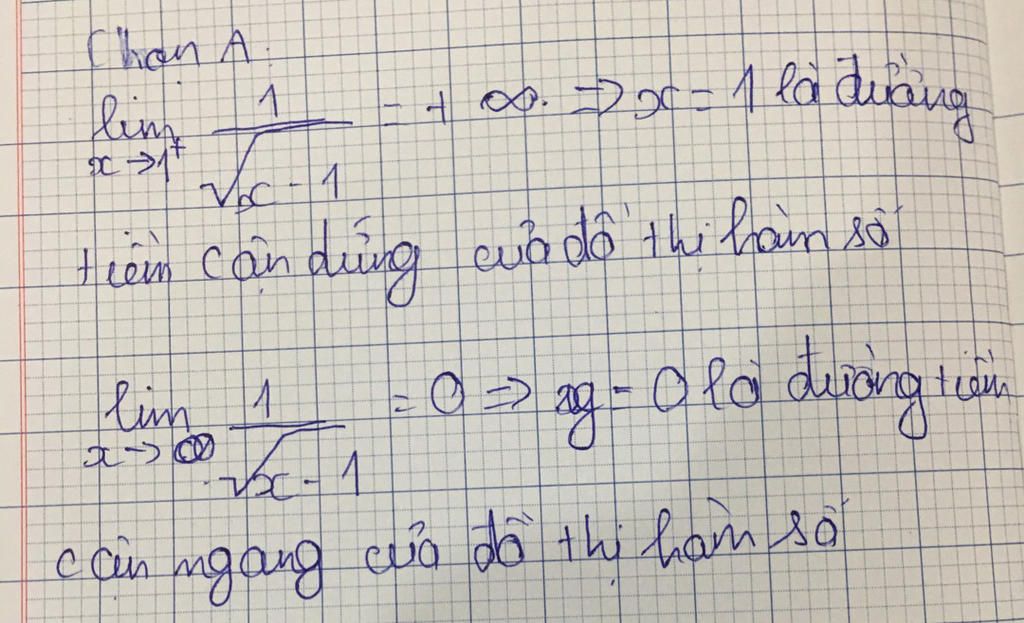 Chọn A.
lim x→1⁺ 1/(√x - 1) = + ∞. ⇒ x = 1 là đường
tiệm cận đứng của đồ thị hàm số
lim x→∞ 1/(√x - 1) = 0 ⇒ y = 0 là đường tiệm
cận ngang của đồ thị hàm số